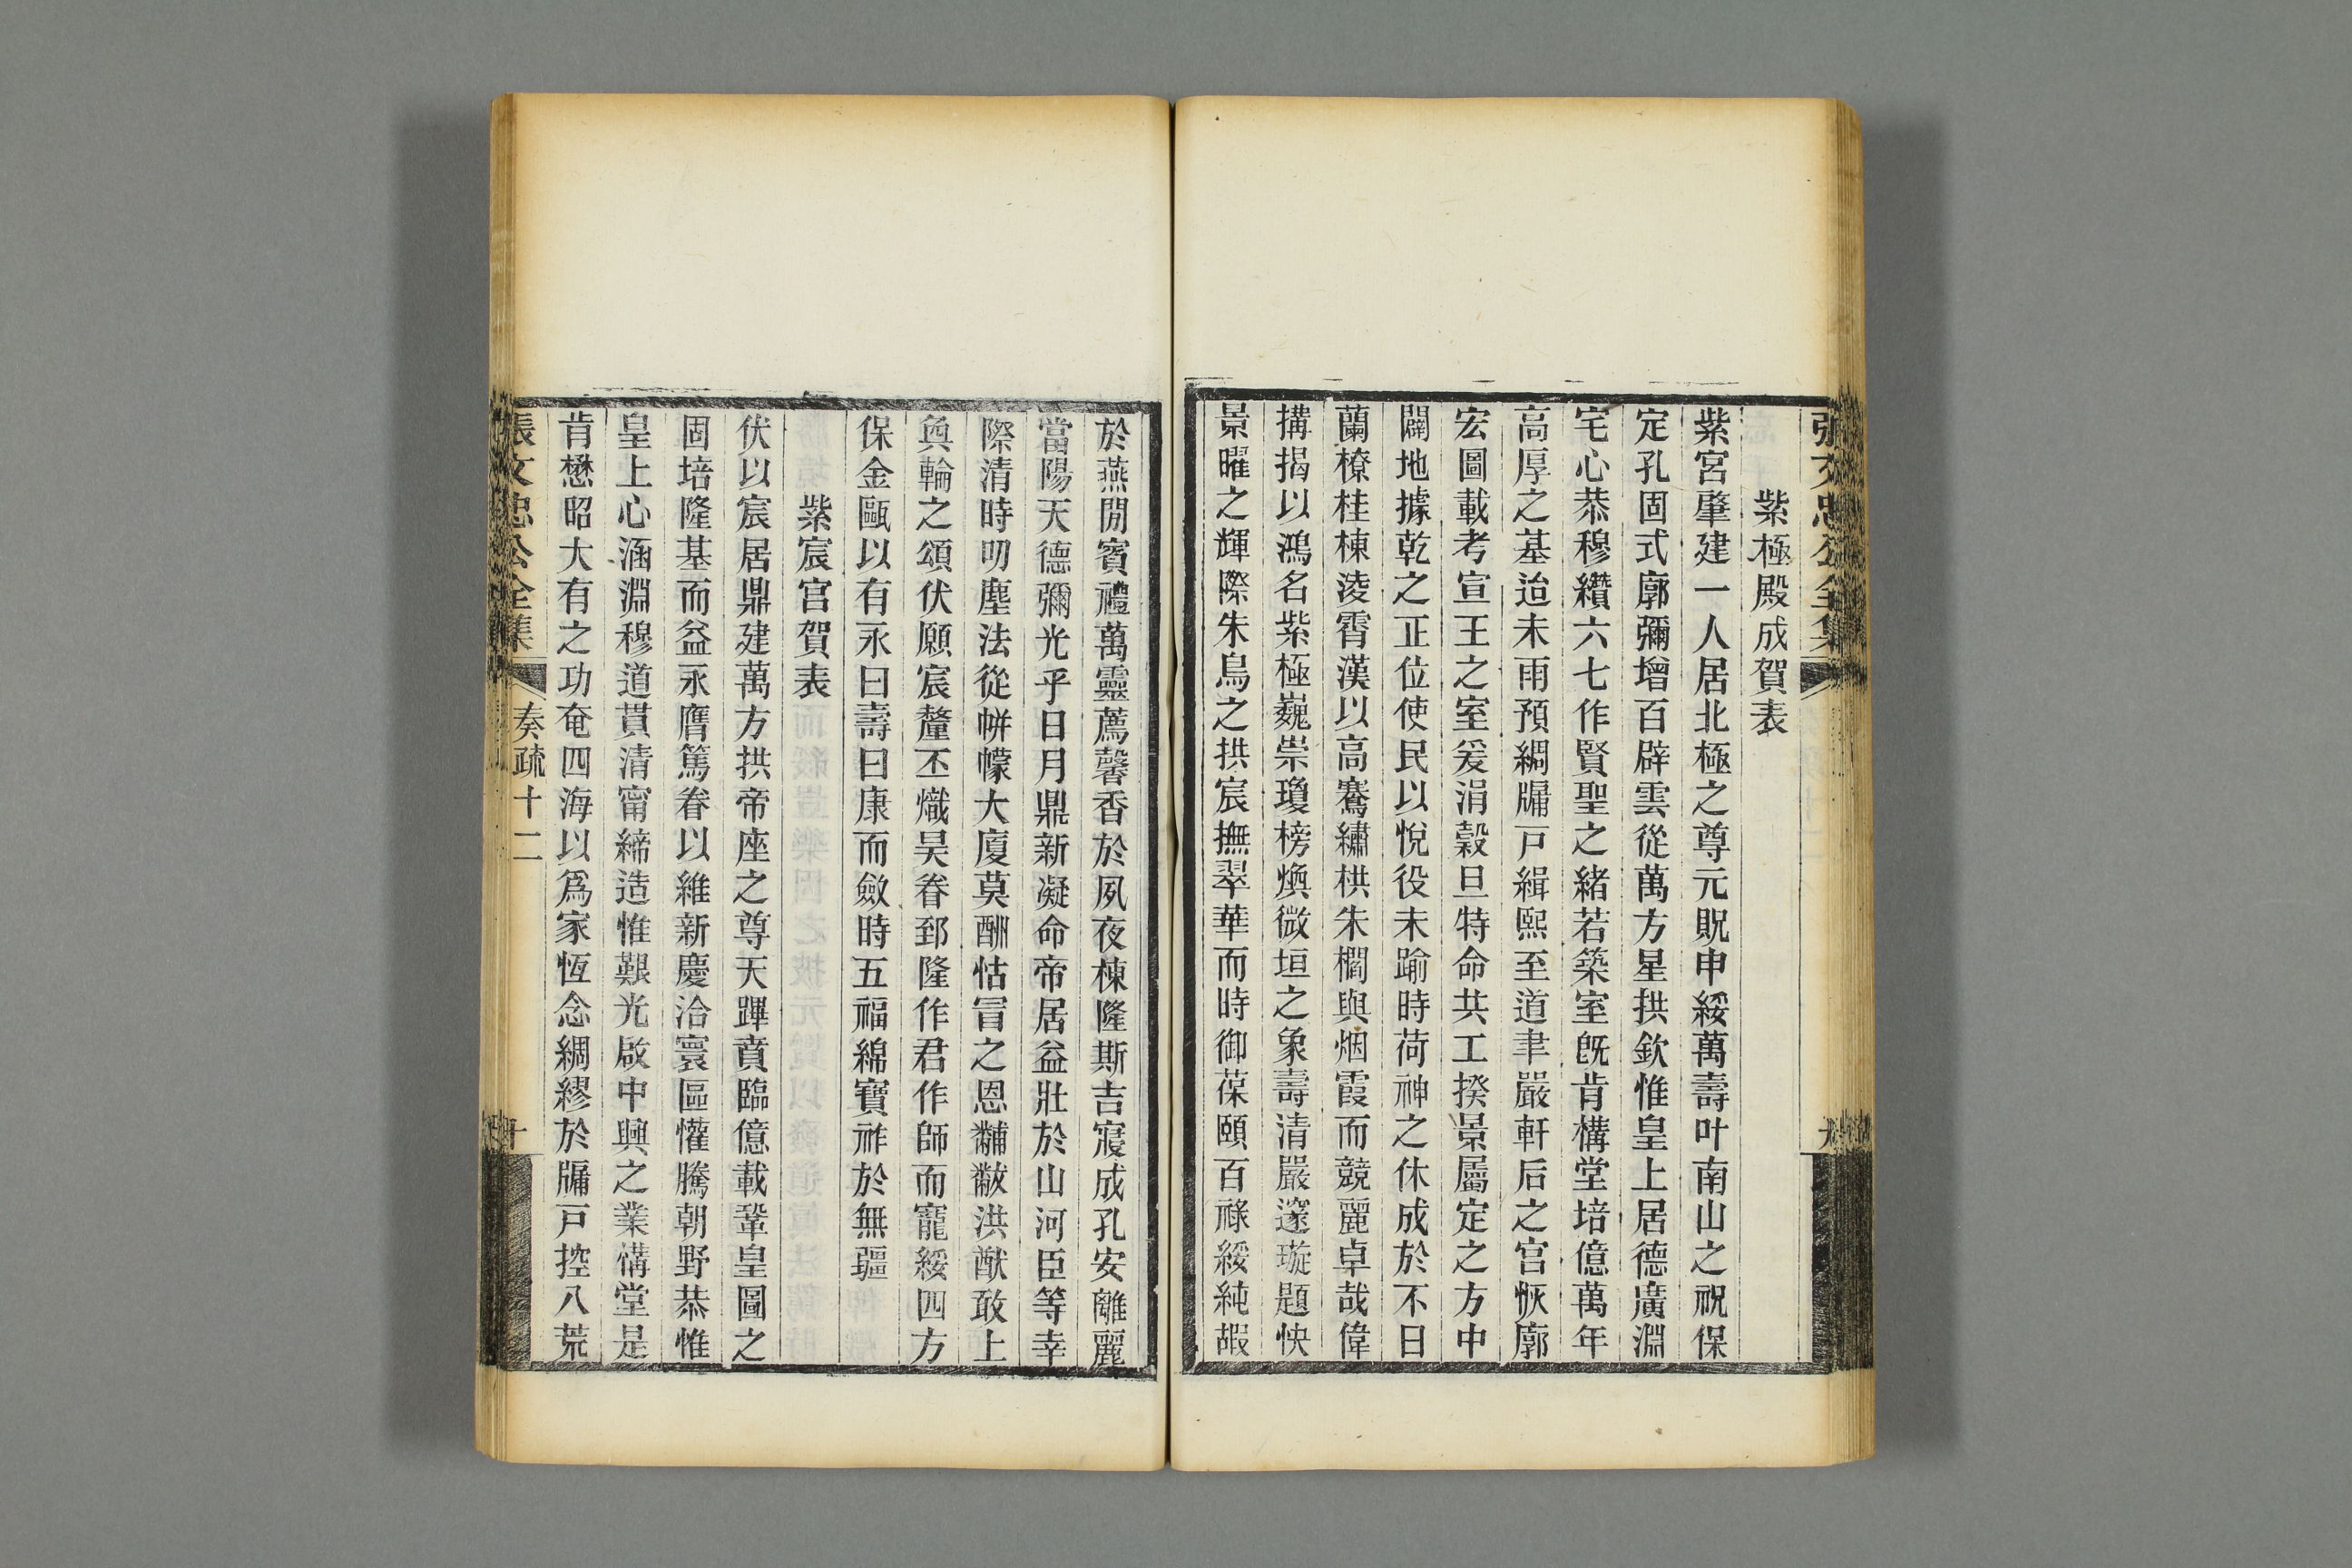 張文忠公全集
九
紫極殿成賀表
紫宮肇建一人居北極之尊元貺申綏萬壽叶南山之祝保
定孔固式廓彌增百辟雲從萬方星拱欽惟皇上居德廣淵
宅心恭穆纘六七作賢聖之緒若築室旣肯構堂培億萬年
高厚之基迨未雨預綢牖戸緝熙至道聿嚴軒后之宫恢廓
宏圖載考宣王之室爰涓榖旦特命共工揆景屬定之方中
闢地據乾之正位使民以悅役未踰時荷神之休成於不日
蘭橑桂棟淩霄漢以高騫繡栱朱櫩與烟霞而競麗卓哉偉
搆揭以鴻名紫極巍崇瓊榜煥微垣之象壽清嚴邃璇題怏
景曜之輝際朱鳥之拱宸撫翠華而時御葆頤百祿綏純嘏
於燕閒賓禮萬靈薦馨香於夙夜棟隆斯吉寢成孔安離麗
當陽天德彌光乎日月鼎新凝命帝居益壯於山河臣等幸
際清時叨塵法從帲幪大廈莫酬怙冒之恩黼黻洪猷敢上
奐輪之頌伏願宸釐丕熾昊眷郅隆作君作師而寵綏四方
保金甌以有永曰壽曰康而斂時五福綿寶祚於無疆
紫宸宮賀表
伏以宸居鼎建萬方拱帝座之尊天蹕賁臨億載鞏皇圖之
固培隆基而益永膺篤眷以維新慶洽寰區懽騰朝野恭惟
皇上心涵淵穆道貫清甯締造惟艱光啟中興之業構堂是
肯懋昭大有之功奄四海以爲家恆念綢繆於牖戸控八荒
張文忠公全集
奏疏十二
十